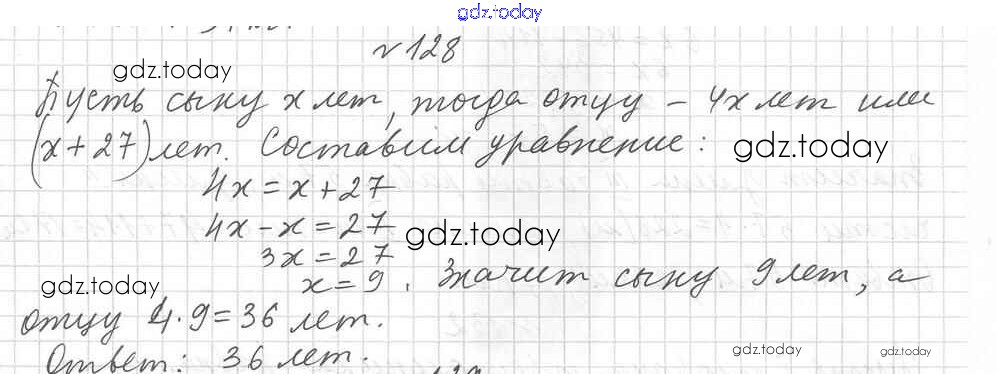 gdz.today
№128
gdz.today
Пусть сыну x лет, тогда отцу – 4x лет или
(x+27) лет. Составим уравнение: gdz.today
4x = x + 27
4x - x = 27 gdz.today
3x = 27
gdz.today x = 9. Значит сыну 9 лет, а
отцу 4·9=36 лет.
Ответ: 36 лет.
gdz.today gdz.today